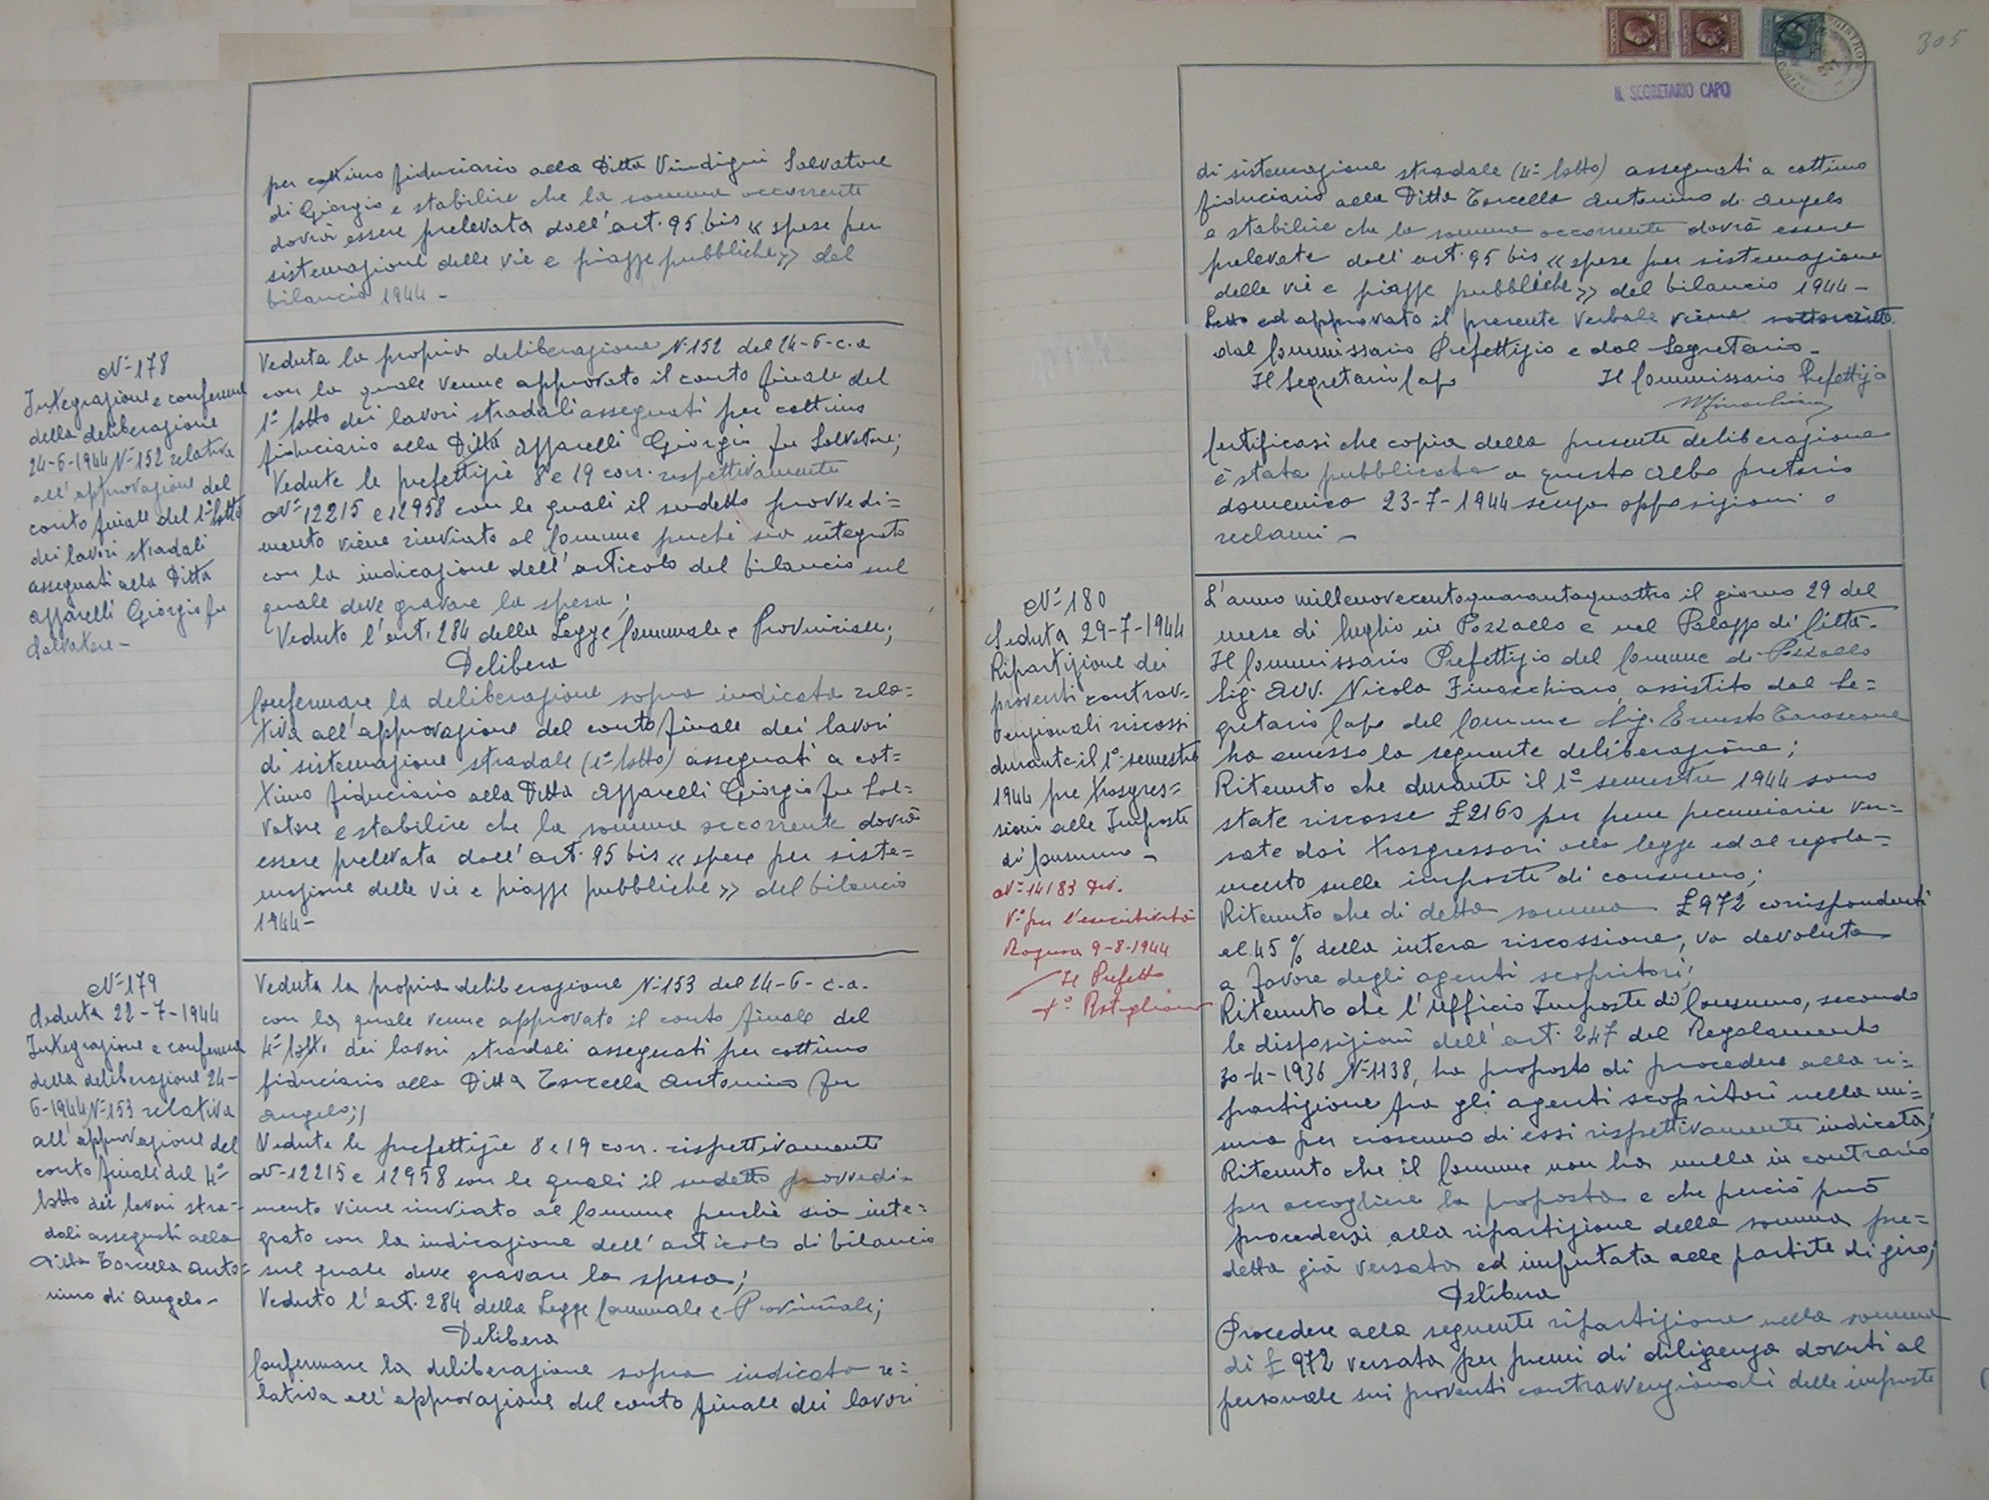 per cottimo fiduciario alla Ditta Vindigni Salvatore
di Giorgio e stabilire che la somma occorrente
dovrà essere prelevata dall'art. 95 bis « spese per
sistemazione delle vie e piazze pubbliche » del
bilancio 1944 -
N° 178
Integrazione e conferma
della deliberazione
24-6-1944 N° 152 relativa
all'approvazione del
conto finale del 1° lotto
dei lavori stradali
assegnati alla Ditta
Azzarelli Giorgio fu
Salvatore -
Veduta la propria deliberazione N. 152 del 24-6-c.a
con la quale venne approvato il conto finale del
1° lotto dei lavori stradali assegnati per cottimo
fiduciario alla Ditta Azzarelli Giorgio fu Salvatore;
Vedute le prefettizie 8 e 19 corr. rispettivamente
N° 12215 e 12958 con le quali il sudetto provvedi=
mento viene rinviato al Comune perché sia integrato
con la indicazione dell'articolo del bilancio sul
quale deve gravare la spesa;
Veduto l'art. 284 della Legge Comunale e Provinciale;
Delibera
Confermare la deliberazione sopra indicata rela=
tiva all'approvazione del conto finale dei lavori
di sistemazione stradale (1° lotto) assegnati a cot=
timo fiduciario alla Ditta Azzarelli Giorgio fu Sal=
vatore e stabilire che la somma occorrente dovrà
essere prelevata dall'art. 95 bis « spese per siste=
mazione delle vie e piazze pubbliche » del bilancio
1944 -
N° 179
Seduta 22-7-1944
Integrazione e conferma
della deliberazione 24-
6-1944 N° 153 relativa
all'approvazione del
conto finale del 4°
lotto dei lavori stra-
dali assegnati alla
Ditta Torcella Anto=
nino di Angelo -
Veduta la propria deliberazione N. 153 del 24-6- c.a.
con la quale venne approvato il conto finale del
4° lotto dei lavori stradali assegnati per cottimo
fiduciario alla Ditta Torcella Antonino fu
Angelo;
Vedute le prefettizie 8 e 19 corr. rispettivamente
N° 12215 e 12958 con le quali il sudetto provvedi=
mento viene rinviato al Comune perchè sia inte=
grato con la indicazione dell'articolo di bilancio
sul quale deve gravare la spesa;
Veduto l'art. 284 della Legge Comunale e Provinciale;
Delibera
Confermare la deliberazione sopra indicata re=
lativa all'approvazione del conto finale dei lavori
305
IL SEGRETARIO CAPO
di sistemazione stradale (4° lotto) assegnati a cottimo
fiduciario alla Ditta Torcella Antonino di Angelo
e stabilire che la somma occorrente dovrà essere
prelevata dall'art. 95 bis « spese per sistemazione
delle vie e piazze pubbliche » del bilancio 1944 -
Letto ed approvato il presente verbale viene sottoscritto
dal Commissario Prefettizio e dal Segretario -
Il Segretario Capo Il Commissario Prefettizio
Certificasi che copia della presente deliberazione
è stata pubblicata a questo Albo pretorio
domenica 23-7-1944 senza opposizioni o
reclami -
N° 180
Seduta 29-7-1944
Ripartizione dei
proventi contrav-
venzionali riscossi
durante il 1° semestre
1944 per trasgres=
sioni alle Imposte
di Consumo -
N° 14183 Div.
V° per l'esecutività
Ragusa 9-8-1944
Il Prefetto
L'anno millenovecentoquarantaquattro il giorno 29 del
mese di luglio in Pozzallo e nel Palazzo di Città -
Il Commissario Prefettizio del Comune di Pozzallo
Sig. Avv. Nicola Finocchiaro, assistito dal Se=
gretario Capo del Comune Sig. Ernesto Tarascone
ha emesso la seguente deliberazione;
Ritenuto che durante il 1° semestre 1944 sono
state riscosse £ 2160 per pene pecuniarie ver=
sate dai trasgressori alla legge ed al regola=
mento sulle imposte di consumo;
Ritenuto che di detta somma £ 972 corrispondenti
al 45 % della intera riscossione, va devoluta
a favore degli agenti scopritori;
Ritenuto che l'Ufficio Imposte di Consumo, secondo
le disposizioni dell'art. 247 del Regolamento
30-4-1936 N° 1138, ha proposto di procedere alla ri=
partizione fra gli agenti scopritori nella mi=
sura per ciascuno di essi rispettivamente indicata;
Ritenuto che il Comune non ha nulla in contrario
per accogliere la proposta e che perciò può
procedersi alla ripartizione della somma pre=
detta già versata ed imputata alle partite di giro;
Delibera
Procedere alla seguente ripartizione nella somma
di £ 972 versata per premi di diligenza dovuti al
personale sui proventi contravvenzionali delle imposte